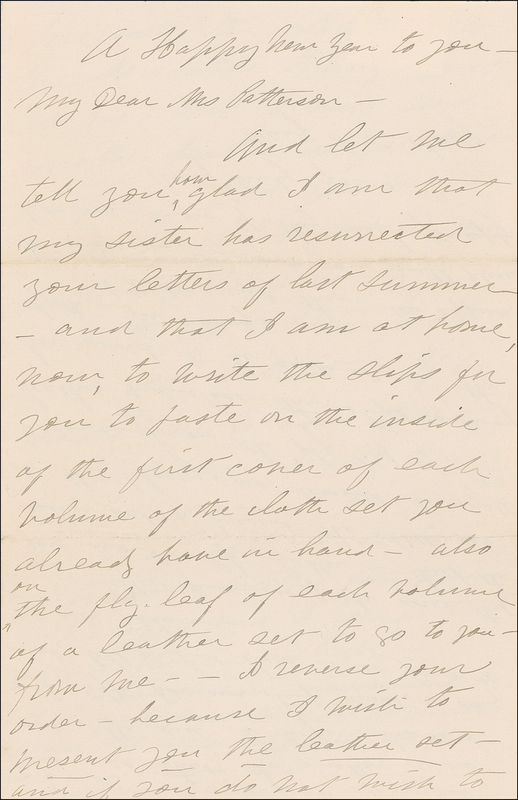 A Happy New Year to you —
My Dear Mrs Patterson —
And let me
tell you how glad I am that
my sister has resurrected
your letters of last summer
— and that I am at home,
now, to write the slips for
you to paste on the inside
of the first cover of each
volume of the cloth set you
already have in hand — also
on the fly-leaf of each volume
of a leather set to go to you —
from me — — I reverse your
order — because I wish to
present you the leather set —
and if you do not wish to